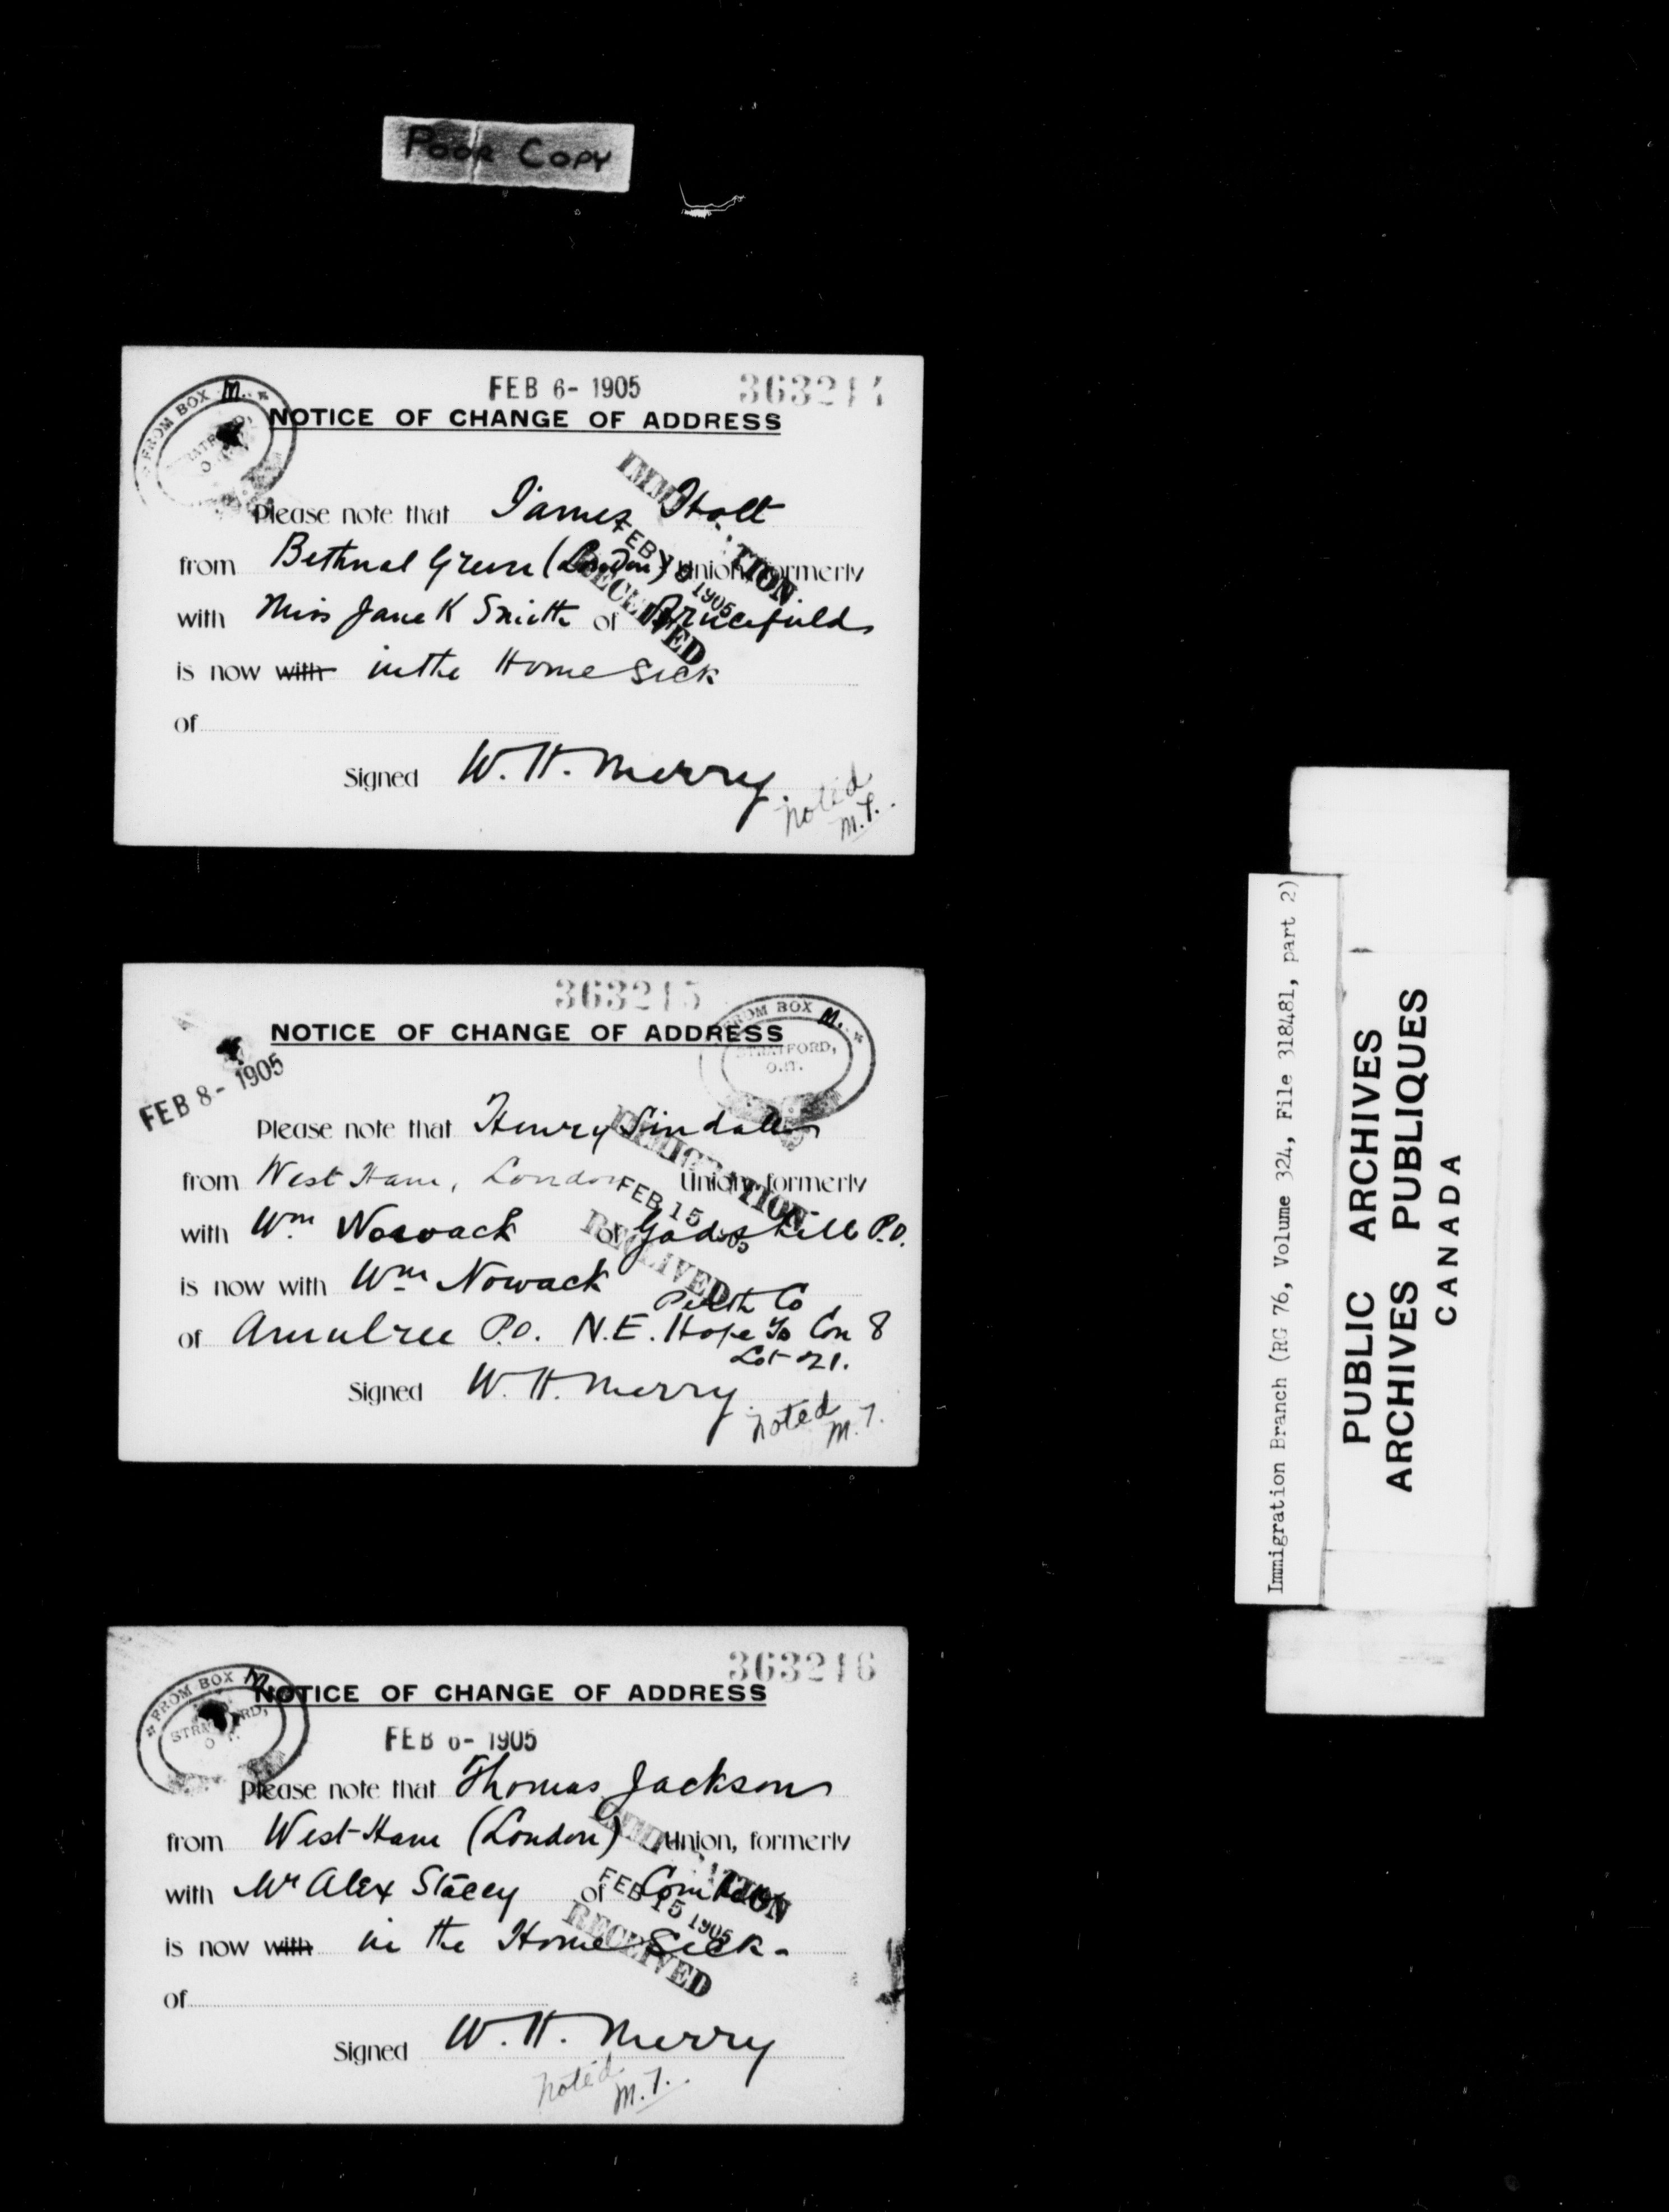 POOR COPY
FEB 6- 1905 363214
FROM BOX M.
NOTICE OF CHANGE OF ADDRESS
Please note that James Holt
from Bethnal Green (London) Union, formerly
with Miss Jane K Smith of Brucefield
is now with in the Home Sick
of
Signed W. H. Merry.
noted
M. T.
IMMIGRATION
FEB 1905
RECEIVED
363215
FROM BOX M.
STRATFORD,
ONT.
NOTICE OF CHANGE OF ADDRESS
FEB 8- 1905
Please note that Henry Lindall
from West Ham, London Union, formerly
with Wm Nowack of Gadshill P.O.
is now with Wm Nowack
Perth Co
of Amulree P.O. N.E. Hope Con 8
Lot 21.
Signed W. H. Merry.
noted
M. T.
IMMIGRATION
FEB 15 1905
RECEIVED
363216
FROM BOX M.
STRATFORD,
NOTICE OF CHANGE OF ADDRESS
FEB 6- 1905
Please note that Thomas Jackson
from West Ham (London) Union, formerly
with Mr Alex Stacey of
is now with in the Home Sick.
of
Signed W. H. Merry
noted
M. T.
IMMIGRATION
FEB 15 1905
RECEIVED
Immigration Branch (RG 76, Volume 324, File 318481, part 2)
PUBLIC ARCHIVES
ARCHIVES PUBLIQUES
CANADA